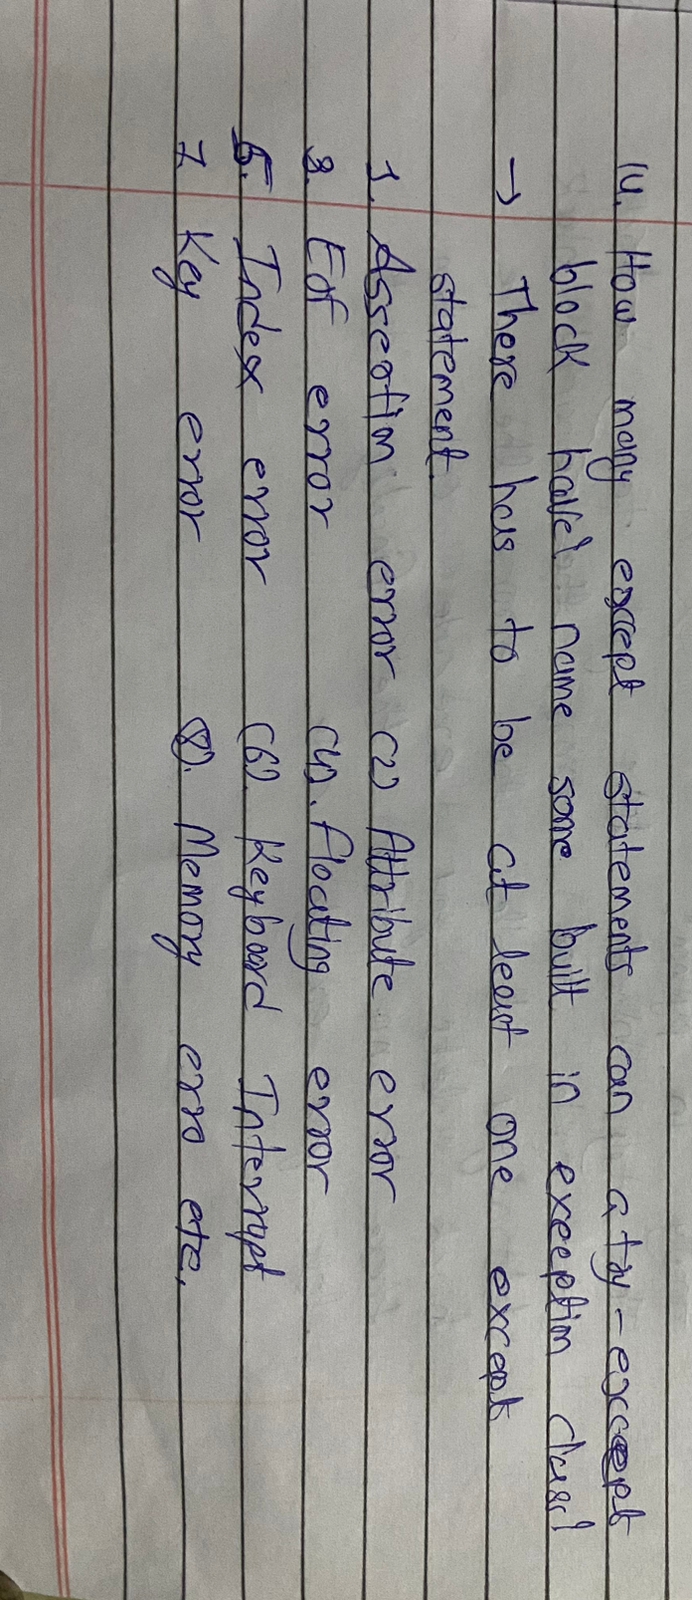 14. How many except statements can a try-except
block have? name some built in exception class!
→ There has to be at least one except
statement.
1. Assertion error (2) Attribute error
3. Eof error (4). floating error
5. Index error (6). Keyboard Interrupt
7. Key error (8). Memory erro etc,